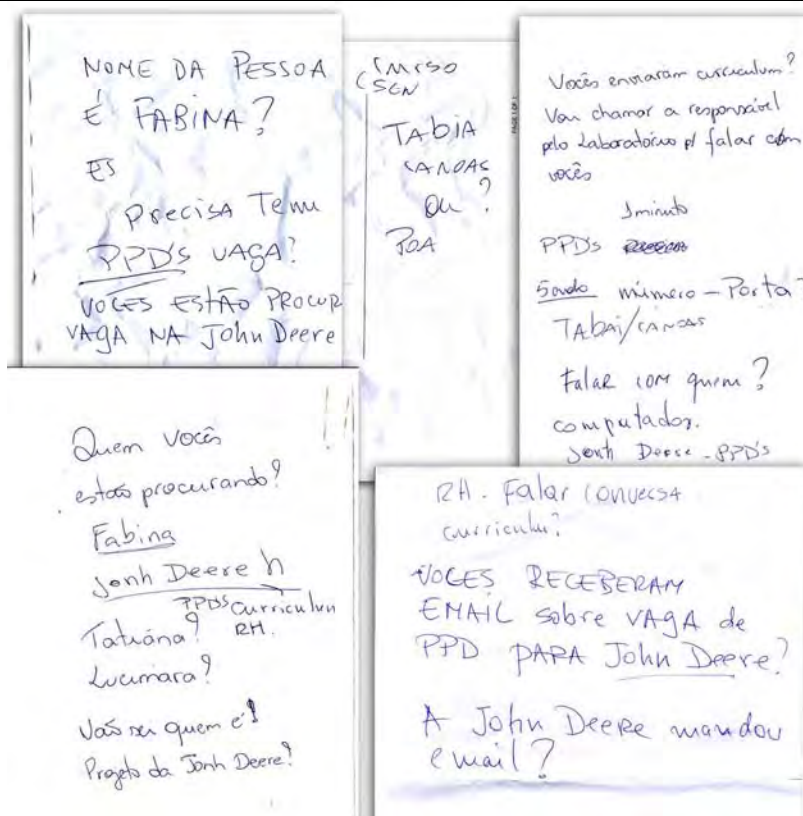 NOME DA PESSOA
É FABINA?
ES
Precisa Temu
PPD'S VAGA?
VOCES ESTÃO PROCUR
VAGA NA John Deere
TAbiA
CANOAS
OU ?
POA
Vocês enviaram curriculum?
Vou chamar a responsável
pelo Laboratório p/ falar com
vocês
1minuto
PPD's
número - Porta
TABAi/CANOAS
Falar com quem?
computador.
Jonh Deere - PPD's
Quem vocês
estão procurando?
Fabina
Jonh Deere h
PPDS Curriculun
Tatiana? RH.
Lucimara?
quem é!
Projeto da Jonh Deere?
RH. Falar conversa
VOCES RECEBERAM
EMAIL sobre VAGA de
PPD PARA John Deere?
A John Deere mandou
email?